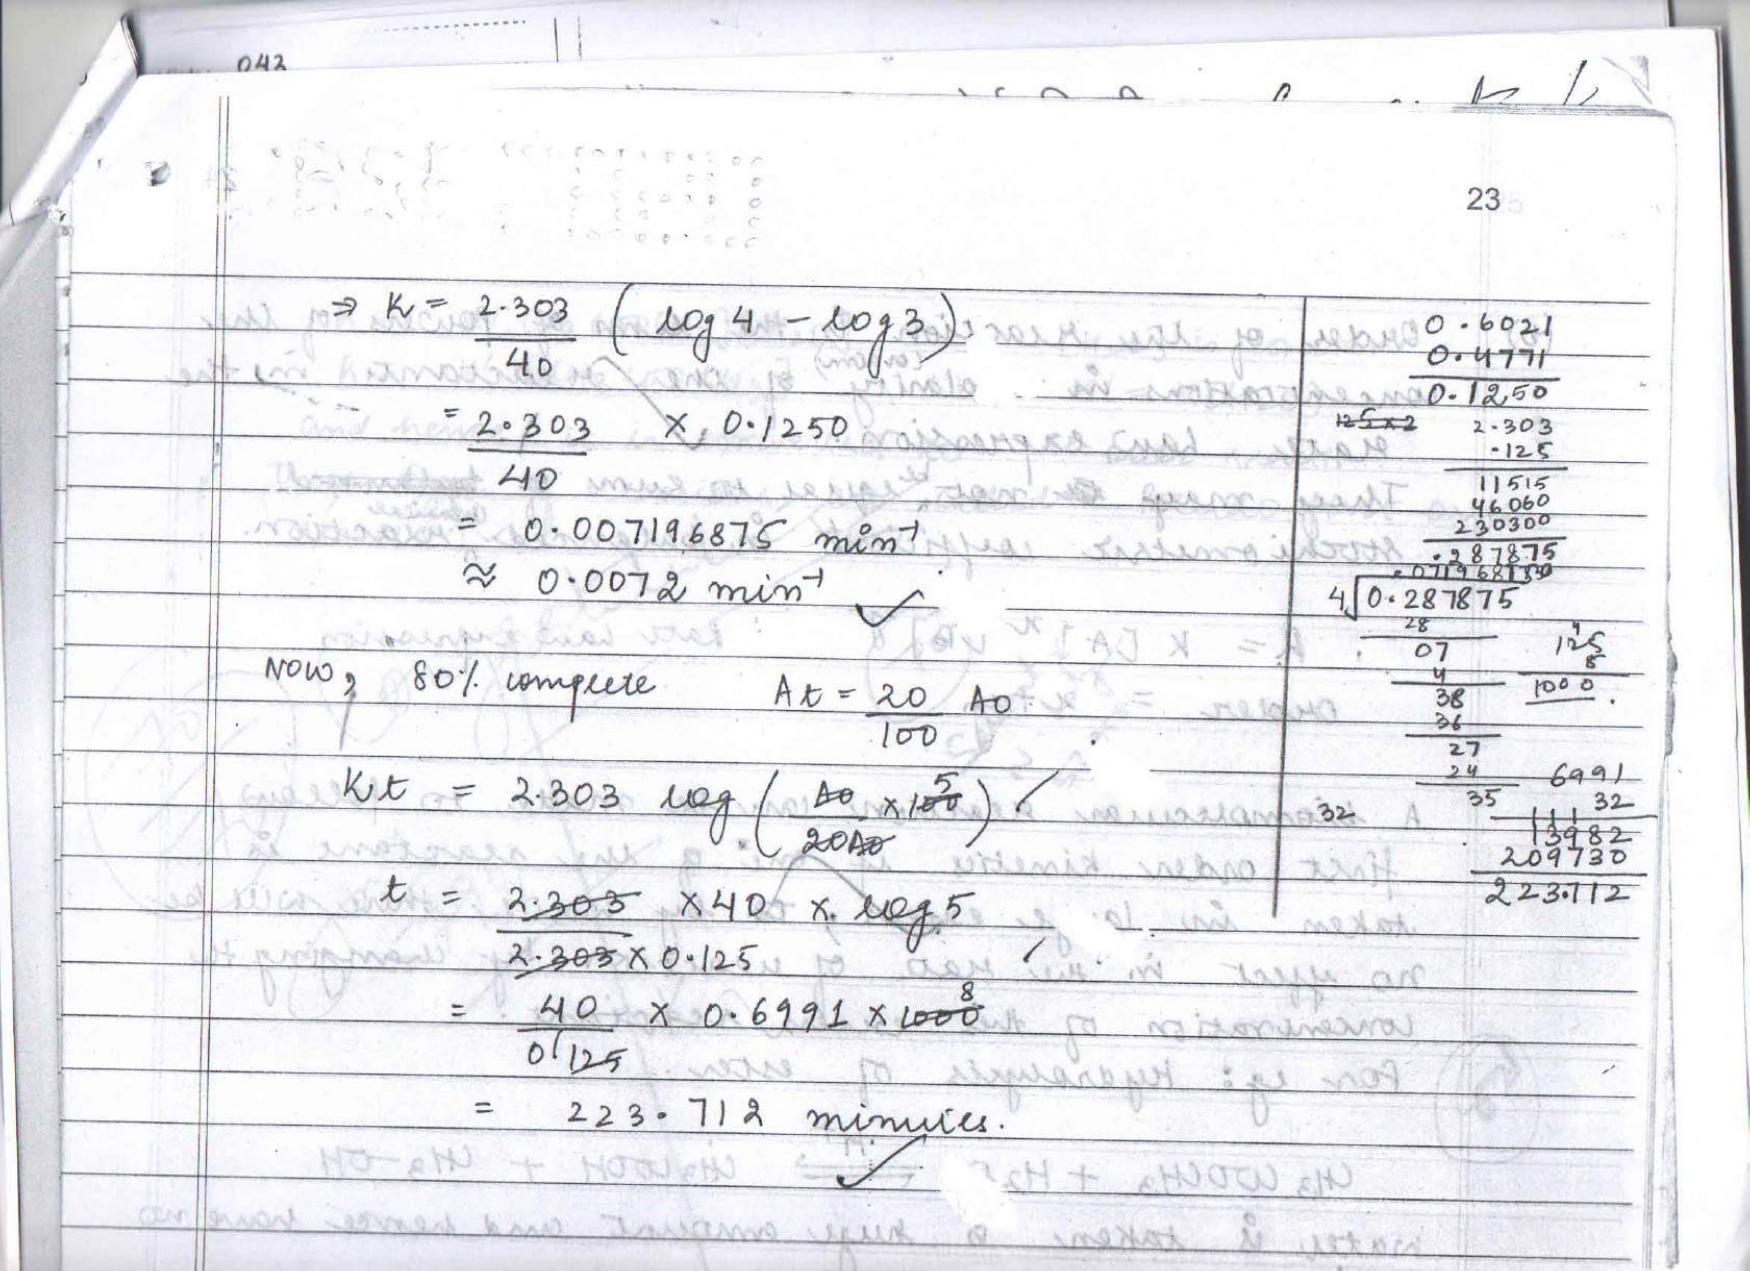 042
23
⇒ K = 2.303/40 (log 4 − log 3)
= 2.303/40 × 0.1250
= 0.007196875 min⁻¹
≈ 0.0072 min⁻¹
Now, 80% complete At = 20/100 A0
Kt = 2.303 log (A0 × 100 5 / 20A0)
t = 2.303 × 40 × log 5 / 2.303 × 0.125
= 40/0.125 × 0.6991 × 1000 8
= 223.712 minutes.
0.6021
0.4771
0.1250
125×2 2.303
.125
11515
46060
230300
.287875
4)0.287875
28
07 125
4 8
38 1000
36
27
24 6991
35 32
32
13982
209730
223.712